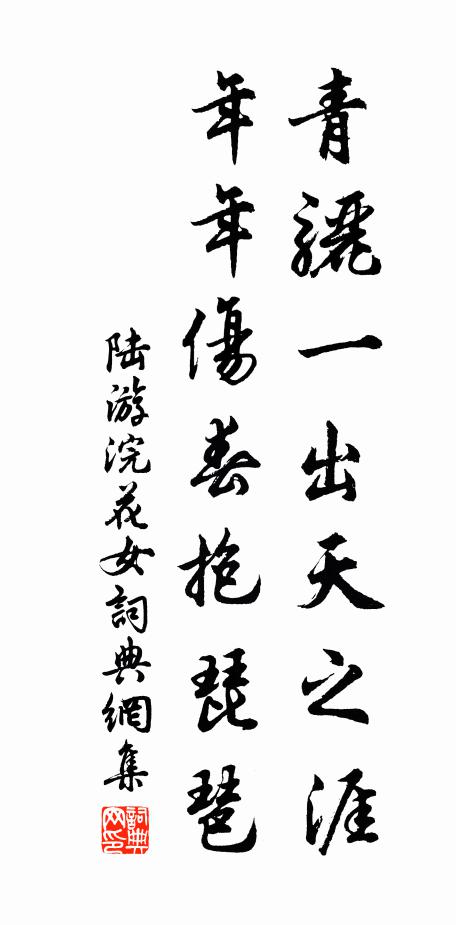 青驪一出天之涯
年年傷春抱琵琶
陆游浣花女詞典網集
詞典网印